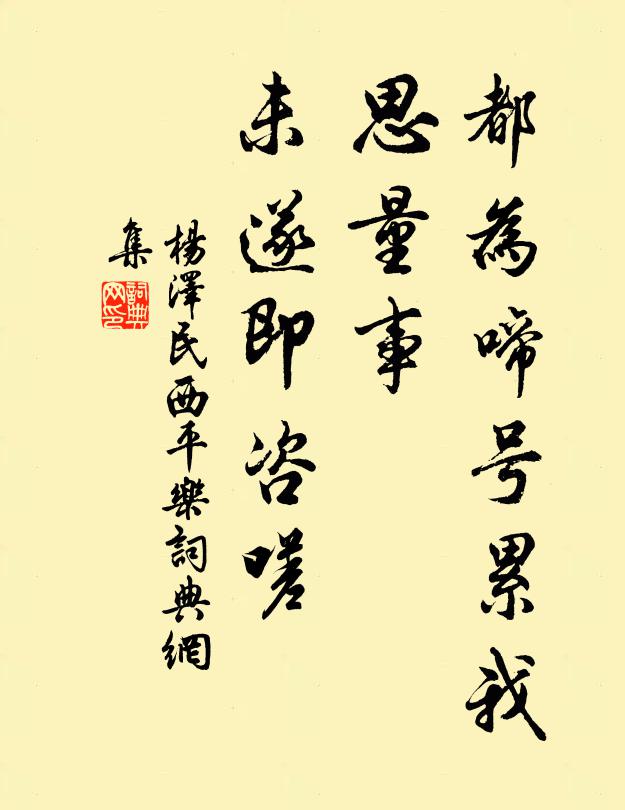 都為啼号累我
思量事
未遂即咨嗟
楊澤民西平樂詞典網
集
詞典
网印